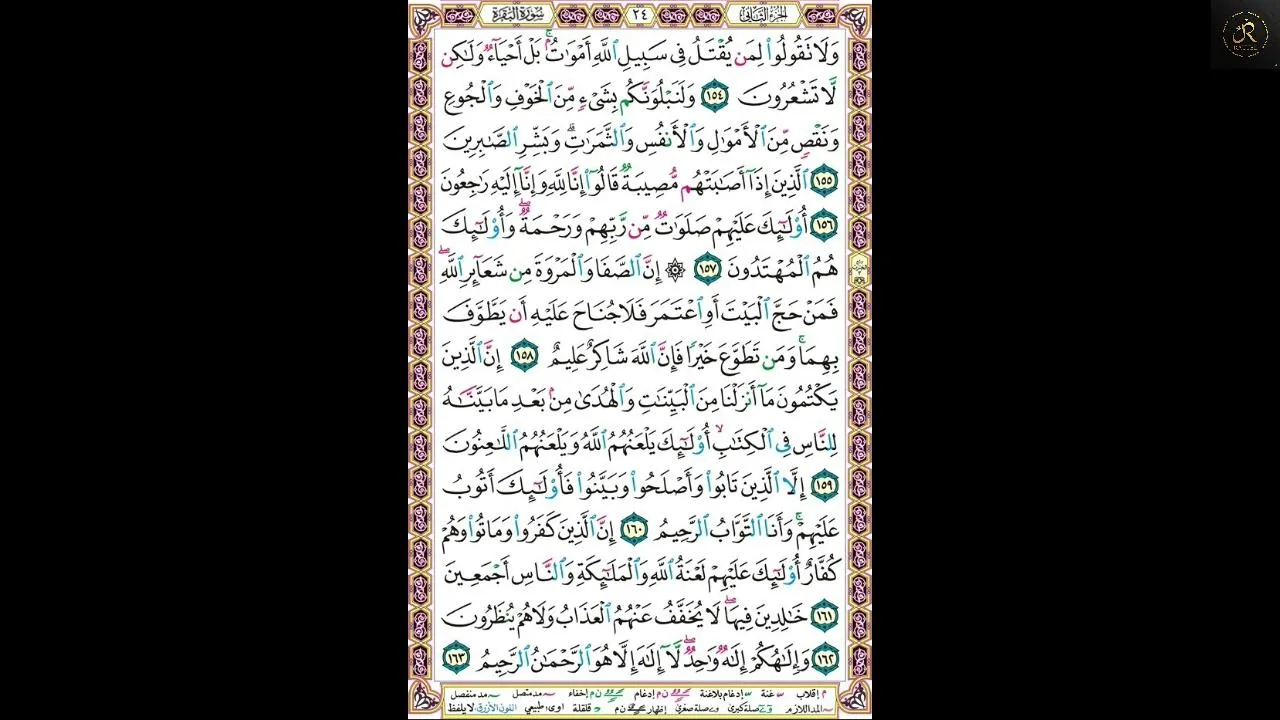 الجزء الثاني ٢٤ سورة البقرة
وَلَا تَقُولُوا۟ لِمَن يُقْتَلُ فِى سَبِيلِ ٱللَّهِ أَمْوَٰتٌۢ ۚ بَلْ أَحْيَآءٌ وَلَٰكِن
لَّا تَشْعُرُونَ ١٥٤ وَلَنَبْلُوَنَّكُم بِشَىْءٍ مِّنَ ٱلْخَوْفِ وَٱلْجُوعِ
وَنَقْصٍ مِّنَ ٱلْأَمْوَٰلِ وَٱلْأَنفُسِ وَٱلثَّمَرَٰتِ ۗ وَبَشِّرِ ٱلصَّٰبِرِينَ
١٥٥ ٱلَّذِينَ إِذَآ أَصَٰبَتْهُم مُّصِيبَةٌ قَالُوٓا۟ إِنَّا لِلَّهِ وَإِنَّآ إِلَيْهِ رَٰجِعُونَ
١٥٦ أُو۟لَٰٓئِكَ عَلَيْهِمْ صَلَوَٰتٌ مِّن رَّبِّهِمْ وَرَحْمَةٌ ۖ وَأُو۟لَٰٓئِكَ
هُمُ ٱلْمُهْتَدُونَ ١٥٧ ۞ إِنَّ ٱلصَّفَا وَٱلْمَرْوَةَ مِن شَعَآئِرِ ٱللَّهِ ۖ
فَمَنْ حَجَّ ٱلْبَيْتَ أَوِ ٱعْتَمَرَ فَلَا جُنَاحَ عَلَيْهِ أَن يَطَّوَّفَ
بِهِمَا ۚ وَمَن تَطَوَّعَ خَيْرًا فَإِنَّ ٱللَّهَ شَاكِرٌ عَلِيمٌ ١٥٨ إِنَّ ٱلَّذِينَ
يَكْتُمُونَ مَآ أَنزَلْنَا مِنَ ٱلْبَيِّنَٰتِ وَٱلْهُدَىٰ مِنۢ بَعْدِ مَا بَيَّنَّٰهُ
لِلنَّاسِ فِى ٱلْكِتَٰبِ ۙ أُو۟لَٰٓئِكَ يَلْعَنُهُمُ ٱللَّهُ وَيَلْعَنُهُمُ ٱللَّٰعِنُونَ
١٥٩ إِلَّا ٱلَّذِينَ تَابُوا۟ وَأَصْلَحُوا۟ وَبَيَّنُوا۟ فَأُو۟لَٰٓئِكَ أَتُوبُ
عَلَيْهِمْ ۚ وَأَنَا ٱلتَّوَّابُ ٱلرَّحِيمُ ١٦٠ إِنَّ ٱلَّذِينَ كَفَرُوا۟ وَمَاتُوا۟ وَهُمْ
كُفَّارٌ أُو۟لَٰٓئِكَ عَلَيْهِمْ لَعْنَةُ ٱللَّهِ وَٱلْمَلَٰٓئِكَةِ وَٱلنَّاسِ أَجْمَعِينَ
١٦١ خَٰلِدِينَ فِيهَا ۖ لَا يُخَفَّفُ عَنْهُمُ ٱلْعَذَابُ وَلَا هُمْ يُنظَرُونَ
١٦٢ وَإِلَٰهُكُمْ إِلَٰهٌ وَٰحِدٌ ۖ لَّآ إِلَٰهَ إِلَّا هُوَ ٱلرَّحْمَٰنُ ٱلرَّحِيمُ ١٦٣
م إقلاب غنة إدغام بلاغنة ن م إدغام ن م إخفاء مد متصل مد منفصل
المد اللازم صلة كبرى صلة صغرى إظهار ن م قلقلة طبيعي اللون الأزرق لا يلفظ